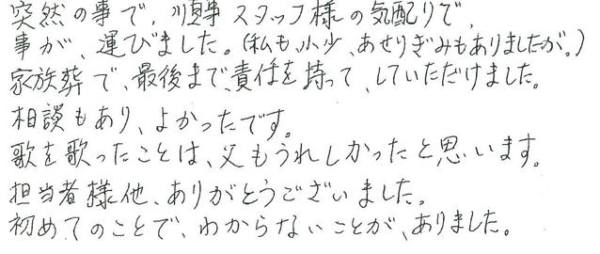 突然の事で、順事スタッフ様の気配りで、
事が、運びました。(私も、小少、あせりぎみもありましたが。)
家族葬で、最後まで、責任を持って、していただけました。
相談もあり、よかったです。
歌を歌ったことは、父もうれしかったと思います。
担当者様他、ありがとうございました。
初めてのことで、わからないことが、ありました。